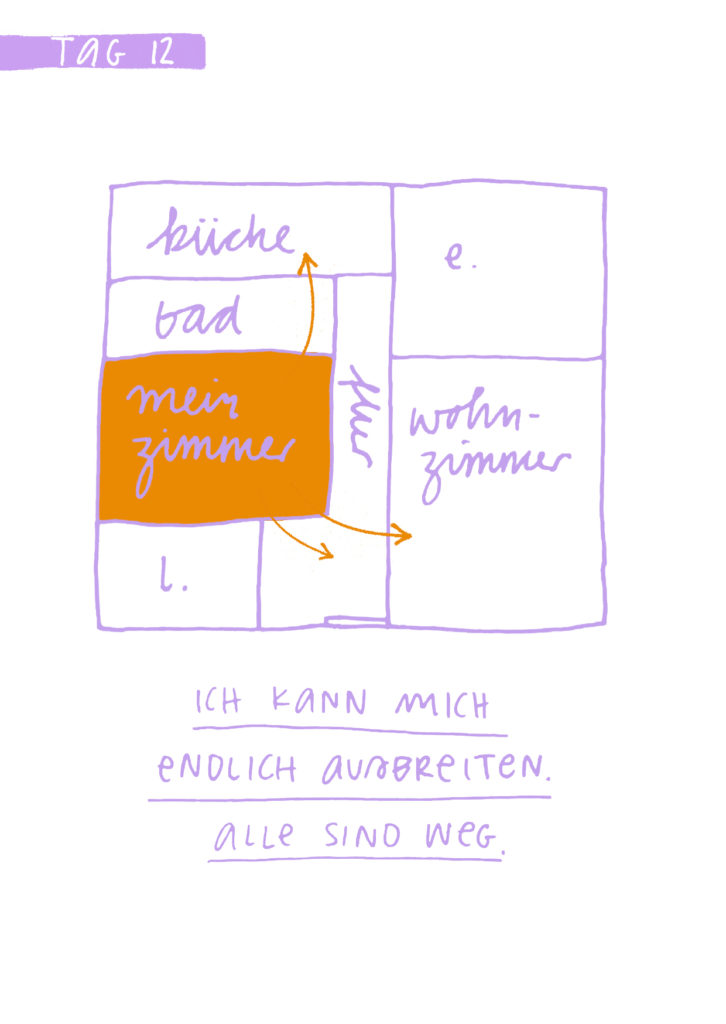 TAG 12
küche
e.
bad
mein
zimmer
flur
wohn-
zimmer
l.
ICH KANN MICH
ENDLICH AUSBREITEN.
ALLE SIND WEG.